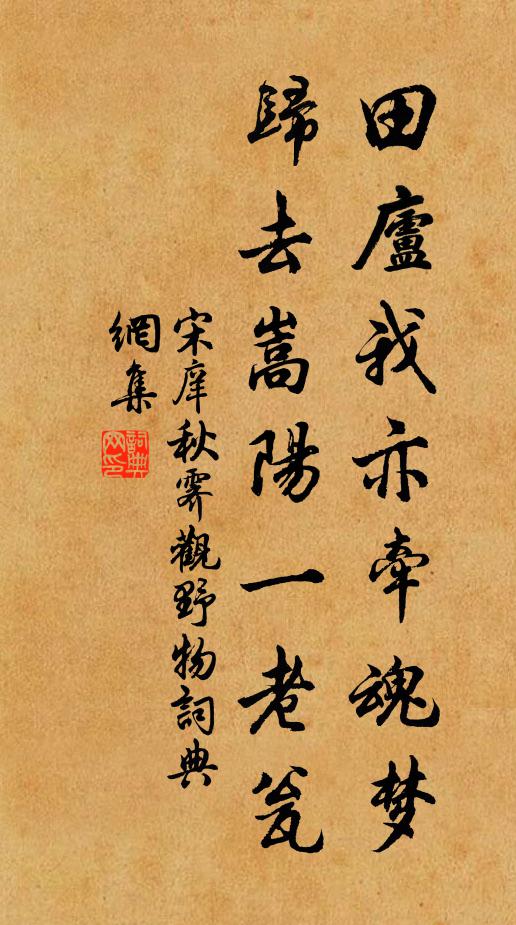 田廬我亦牽魂梦
歸去嵩陽一老瓮
宋庠秋霽觀野物詞典
網集
詞典
网印